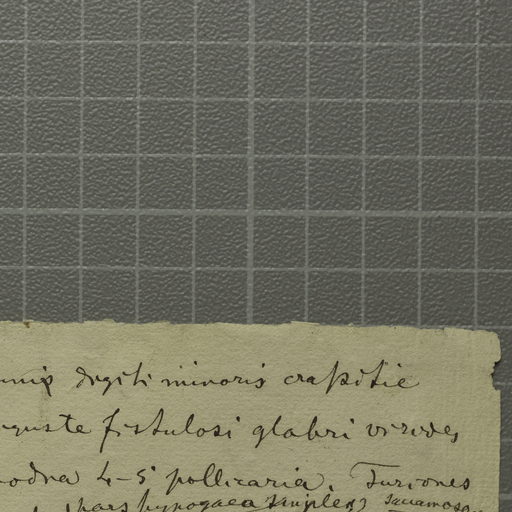 digiti minoris craſsitie
anguste fistulosi glabri virides
4-5 pollicaria. Turiones
pars hypogaea simplex, squamosa